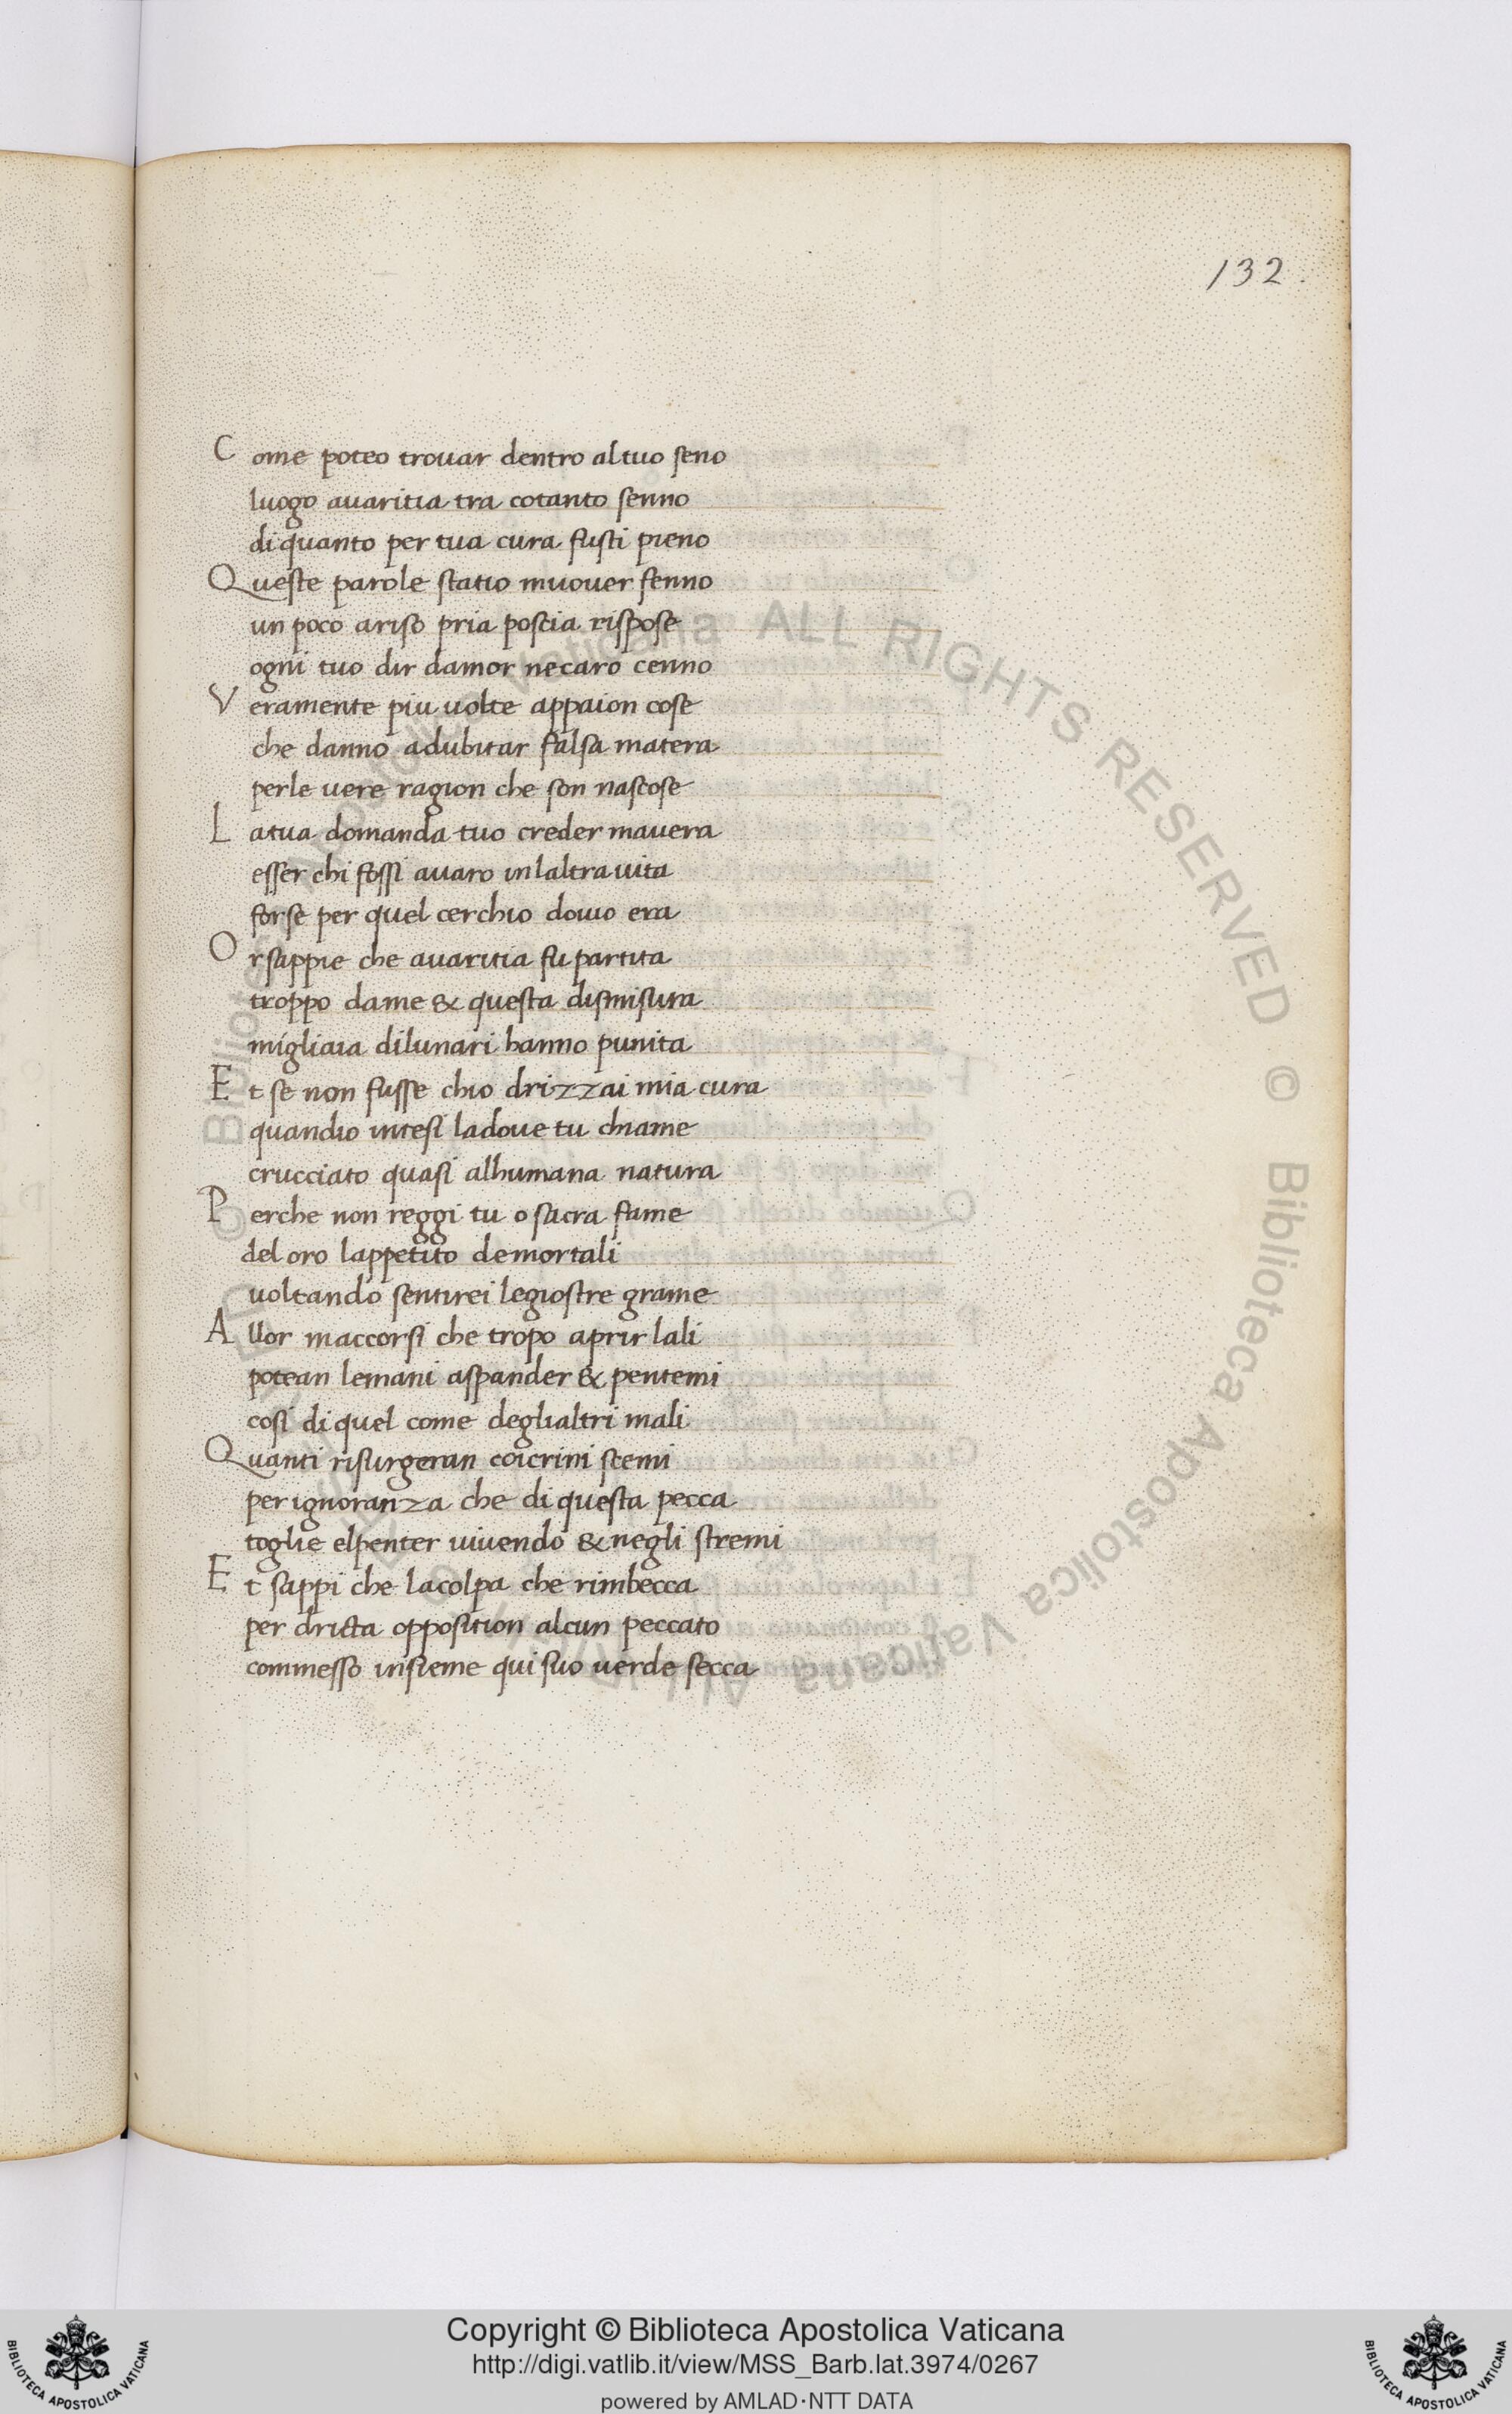 132.
Come poteo trouar dentro altuo seno
luogo auaritia tra cotanto senno
diquanto per tua cura fusti pieno
Queste parole statio muouer fenno
un poco ariso pria poscia rispose
ogni tuo dir damor necaro cenno
Veramente piu uolte appaion cose
che danno adubitar falsa matera
perle uere ragion che son nascose
Latua domanda tuo creder mauera
esser chi fossi auaro inlaltrauita
forse per quel cerchio douio era
Orsappie che auaritia fu partita
troppo dame & questa dismisura
migliaia dilunari hanno punita
Et se non fusse chio drizzai mia cura
quandio intesi ladoue tu chiame
crucciato quasi alhumana natura
Perche non reggi tu o sacra fame
del oro lappetito demortali
uoltando sentirei legiostre grame
Allor maccorsi che tropo aprir lali
potean lemani aspander & pentemi
cosi di quel come deglialtri mali
Quanti risurgeran coicrini scemi
per ignoranza che di questa pecca
toglie elpenter uiuendo & negli stremi
Et sappi che lacolpa che rimbecca
per dritta opposition alcun peccato
commesso insieme qui suo uerde secca
© Biblioteca Apostolica Vaticana ALL RIGHTS RESERVED © Biblioteca Apostolica Vaticana ALL
Copyright © Biblioteca Apostolica Vaticana
http://digi.vatlib.it/view/MSS_Barb.lat.3974/0267
powered by AMLAD·NTT DATA
BIBLIOTECA APOSTOLICA VATICANA
BIBLIOTECA APOSTOLICA VATICANA